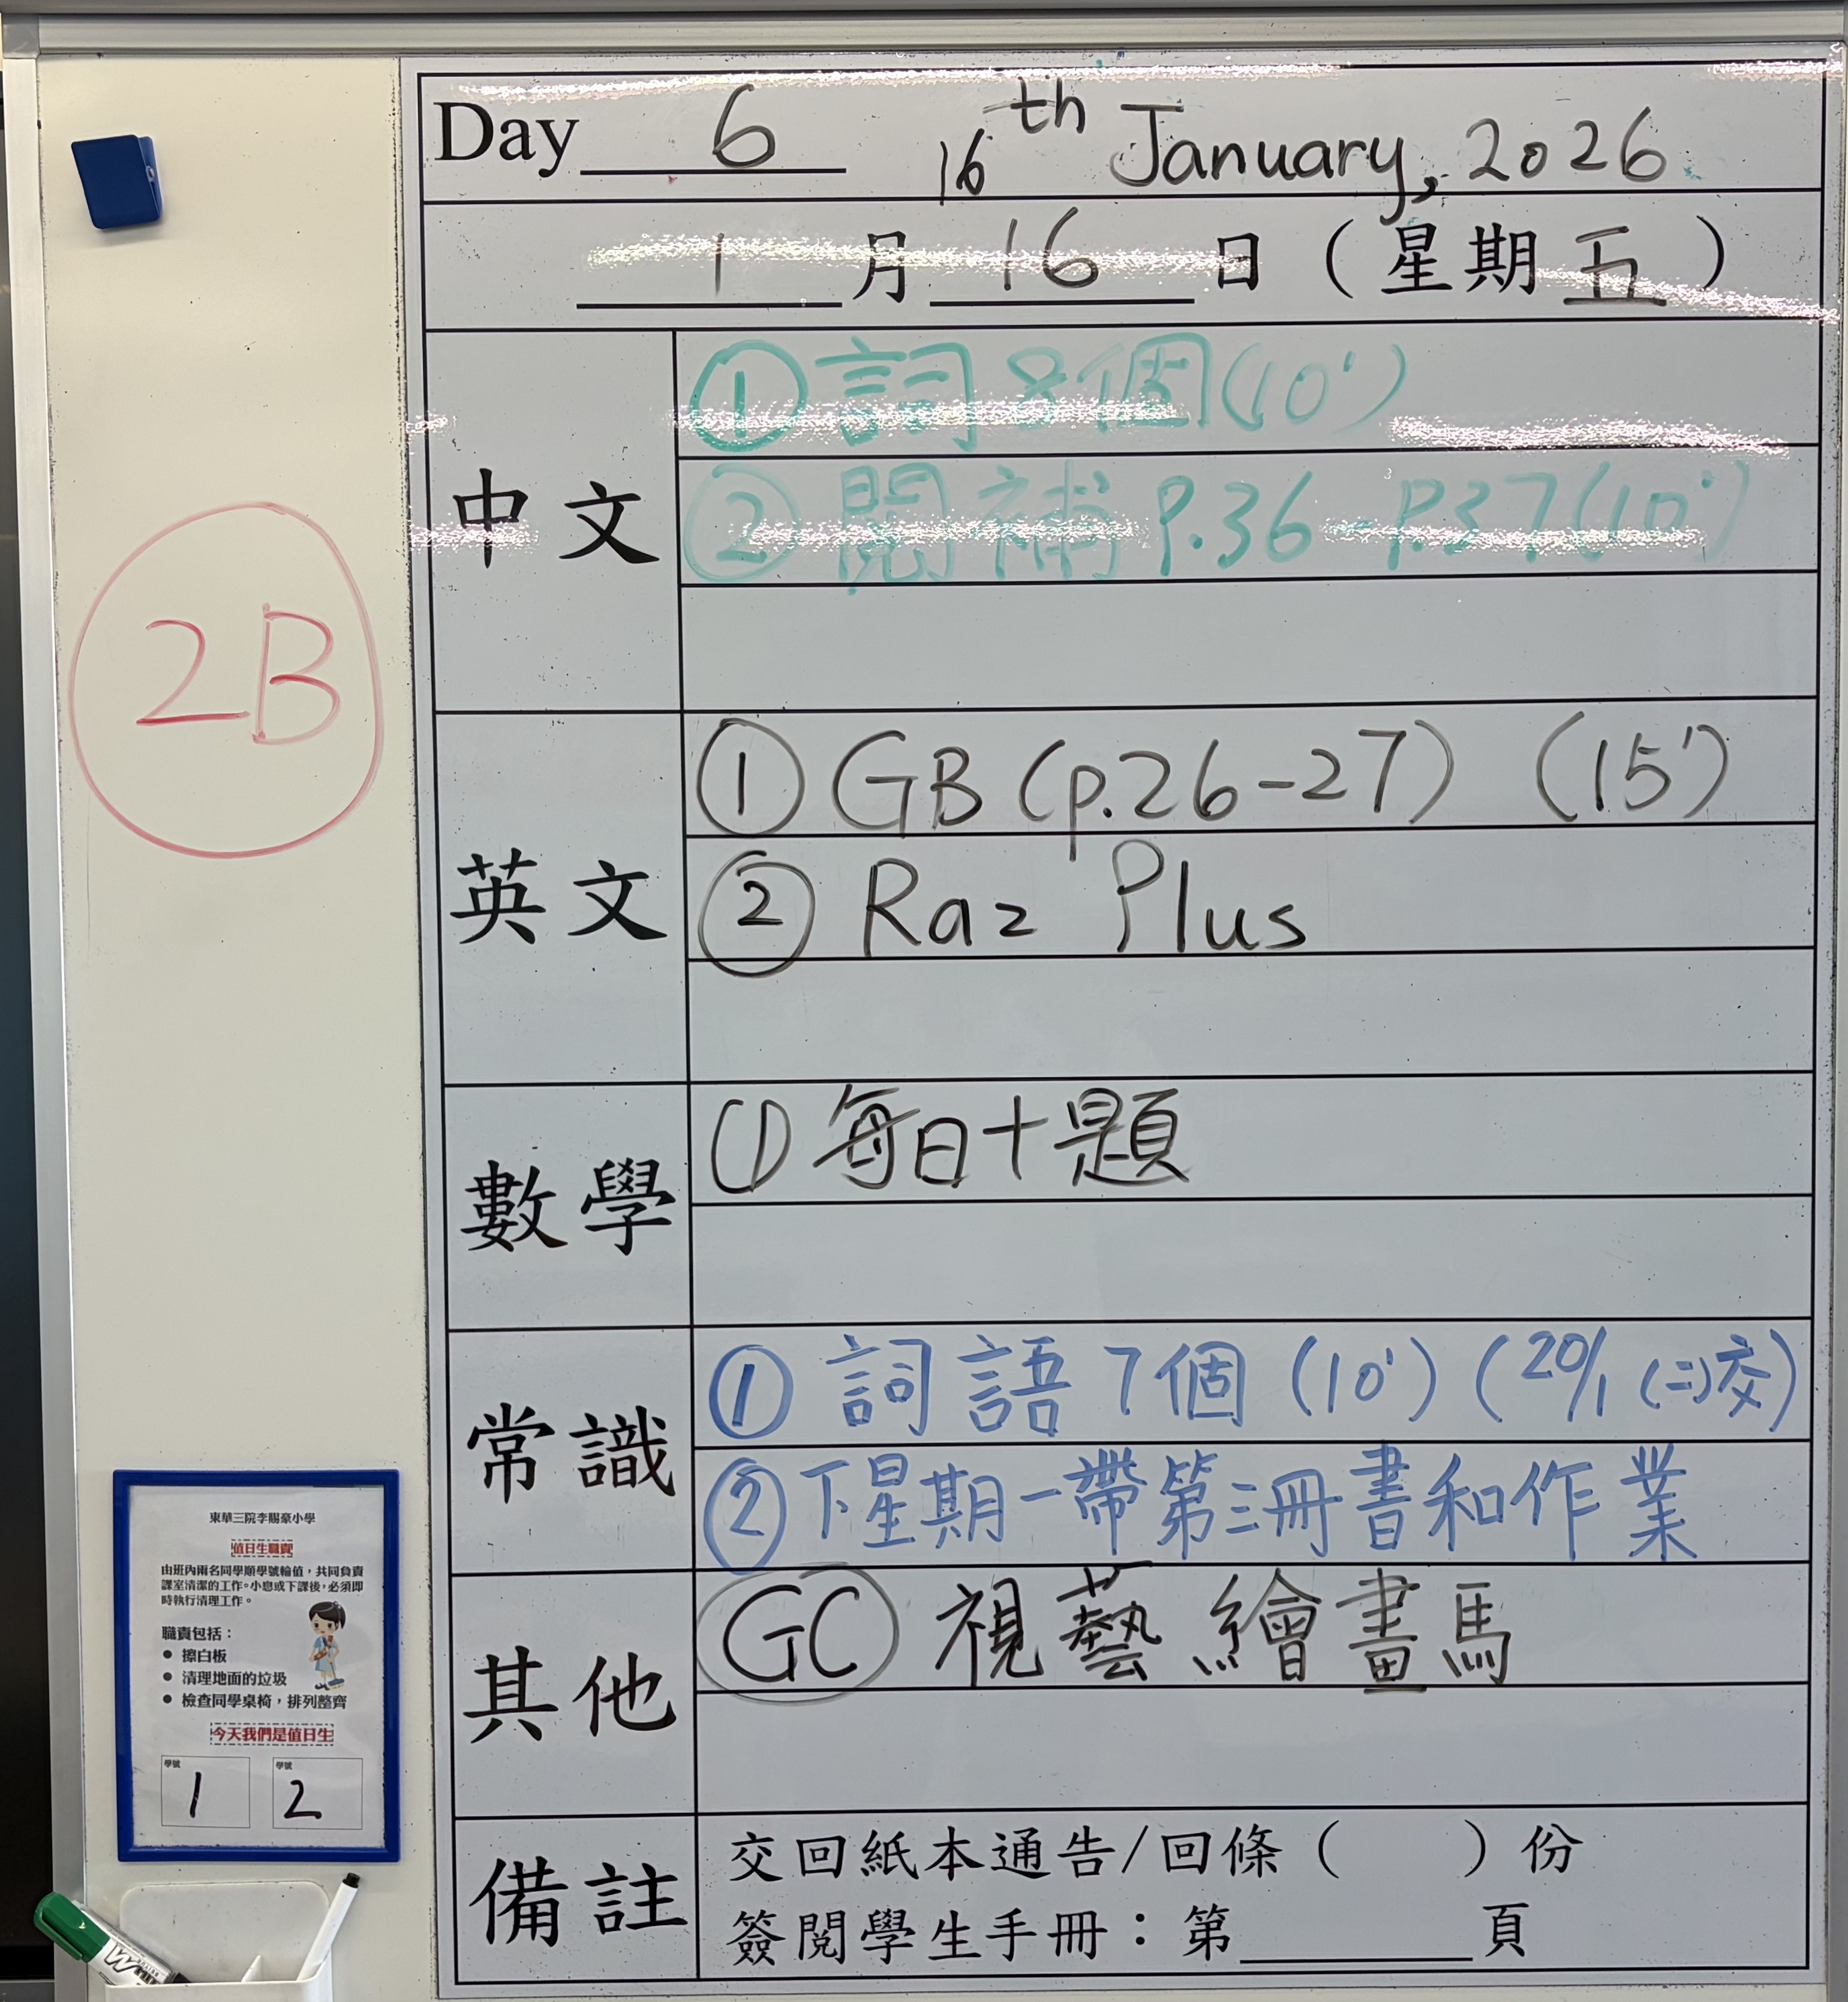 Day 6 16th January, 2026
1 月 16 日 ( 星期 五 )
中文
① 詞 8個(10')
② 閱補 P.36 - P.37(10')
2B
英文
① GB (p.26-27) (15')
② Raz Plus
數學
① 每日十題
常識
① 詞語7個 (10') (20/1 (二)交)
② 下星期一帶第三冊書和作業
其他
GC 視藝繪畫馬
備註
交回紙本通告/回條 ( ) 份
簽閱學生手冊:第____頁
東華三院李賜豪小學
值日生職責
由班內兩名同學順學號輪值,共同負責
課室清潔的工作。小息或下課後,必須即
時執行清理工作。
職責包括:
● 擦白板
● 清理地面的垃圾
● 檢查同學桌椅,排列整齊
今天我們是值日生
學號 1 學號 2